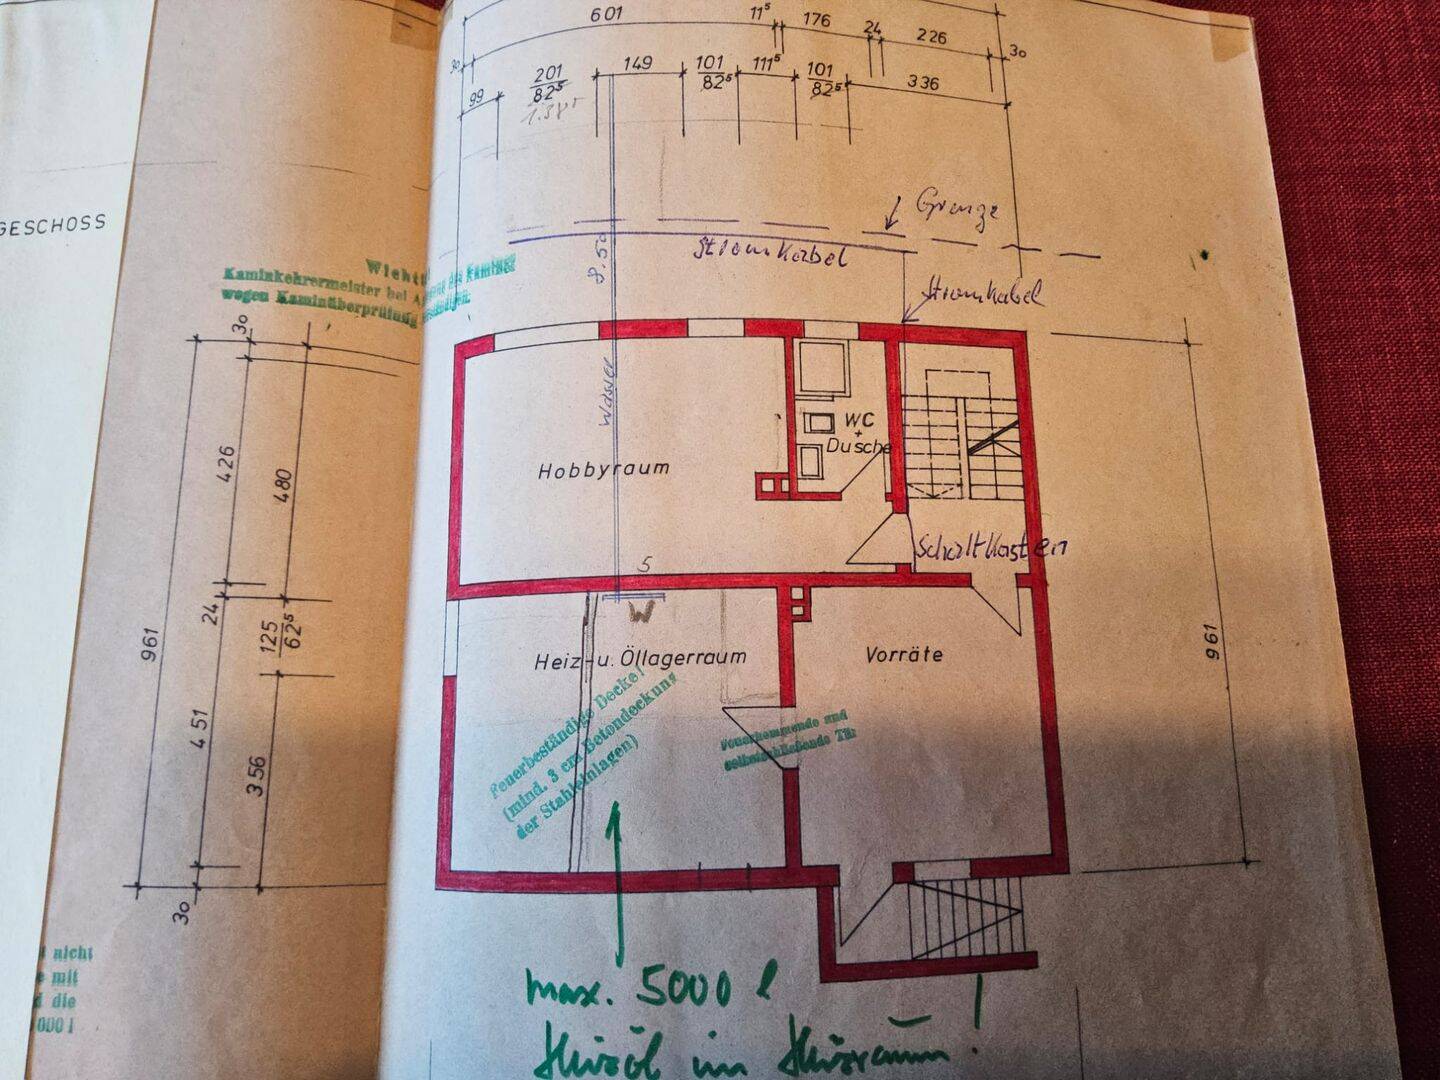 601
11⁵
176
24
226
30
30
99
201
82⁵
149
101
82⁵
111⁵
101
82⁵
336
GESCHOSS
Grenze
Stromkabel
8.50
Stromkabel
Kaminkehrermeister bei
wegen Kaminüberprüfung
30
Wasser
WC
+
Dusche
426
480
Hobbyraum
Schaltkasten
5
24
125
62⁵
W
961
Heiz-u. Öllagerraum
Vorräte
961
Feuerbeständige Decke!
(mind. 3 cm Betondeckung
der Stahleinlagen)
Feuerhemmende und
selbstschließende Tür
451
356
30
nicht
mit
die
000 l
max. 5000 l
Heizöl im Heizraum!